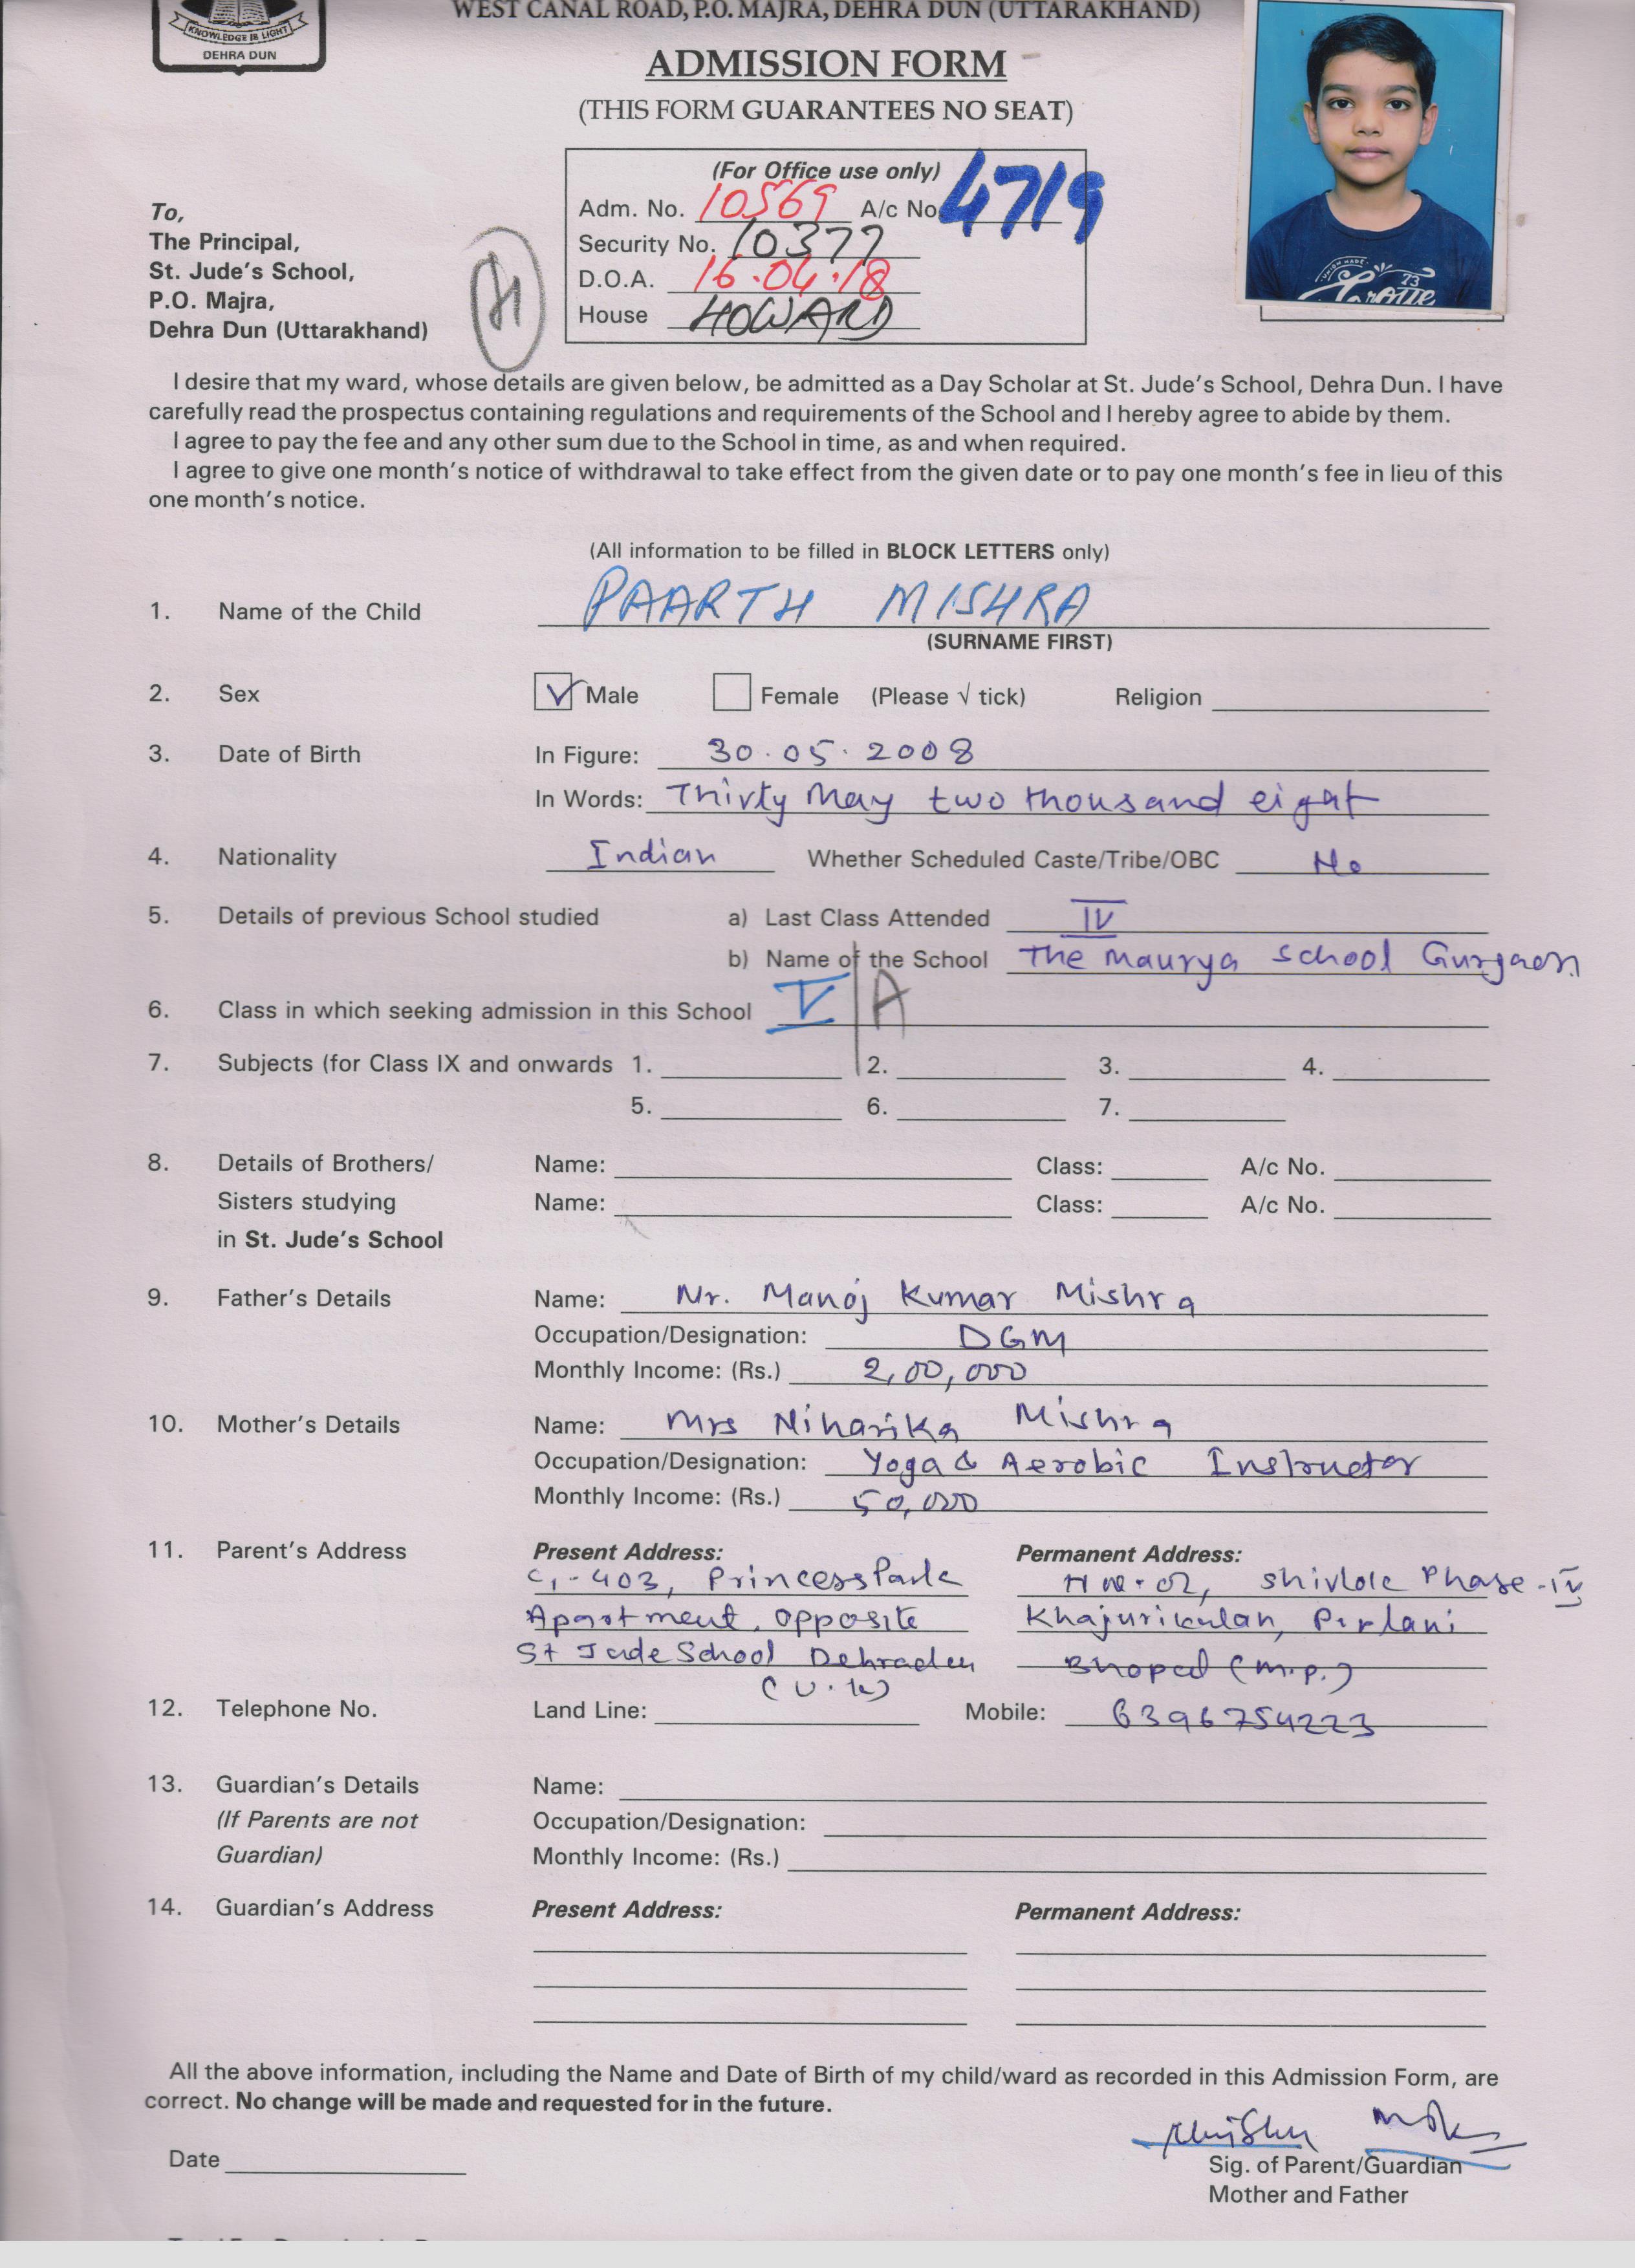 WEST CANAL ROAD, P.O. MAJRA, DEHRA DUN (UTTARAKHAND)
KNOWLEDGE IS LIGHT
DEHRA DUN
ADMISSION FORM
(THIS FORM GUARANTEES NO SEAT)
(For Office use only)
Adm. No. 10569 A/c No. 4719
Security No. 10377
D.O.A. 16.04.18
House HOWARD
To,
The Principal,
St. Jude's School,
P.O. Majra,
Dehra Dun (Uttarakhand)
I desire that my ward, whose details are given below, be admitted as a Day Scholar at St. Jude's School, Dehra Dun. I have
carefully read the prospectus containing regulations and requirements of the School and I hereby agree to abide by them.
I agree to pay the fee and any other sum due to the School in time, as and when required.
I agree to give one month's notice of withdrawal to take effect from the given date or to pay one month's fee in lieu of this
one month's notice.
(All information to be filled in BLOCK LETTERS only)
1. Name of the Child PAARTH MISHRA
(SURNAME FIRST)
2. Sex Male Female (Please √ tick) Religion
3. Date of Birth In Figure: 30.05.2008
In Words: Thirty May two thousand eight
4. Nationality Indian Whether Scheduled Caste/Tribe/OBC No
5. Details of previous School studied a) Last Class Attended IV
b) Name of the School The Maurya School Gurgaon
6. Class in which seeking admission in this School V A
7. Subjects (for Class IX and onwards 1. 2. 3. 4.
5. 6. 7.
8. Details of Brothers/ Name: Class: A/c No.
Sisters studying Name: Class: A/c No.
in St. Jude's School
9. Father's Details Name: Mr. Manoj Kumar Mishra
Occupation/Designation: DGM
Monthly Income: (Rs.) 2,00,000
10. Mother's Details Name: Mrs Niharika Mishra
Occupation/Designation: Yoga & Aerobic Instructor
Monthly Income: (Rs.) 50,000
11. Parent's Address Present Address: Permanent Address:
403, Princess Park Shivlok Phase-IV
Apartment, opposite Khajurikalan, Piplani
St Jude School Dehradun Bhopal (M.P.)
(U.K)
12. Telephone No. Land Line: Mobile: 6396754223
13. Guardian's Details Name:
(If Parents are not Occupation/Designation:
Guardian) Monthly Income: (Rs.)
14. Guardian's Address Present Address: Permanent Address:
All the above information, including the Name and Date of Birth of my child/ward as recorded in this Admission Form, are
correct. No change will be made and requested for in the future.
Date
Sig. of Parent/Guardian
Mother and Father